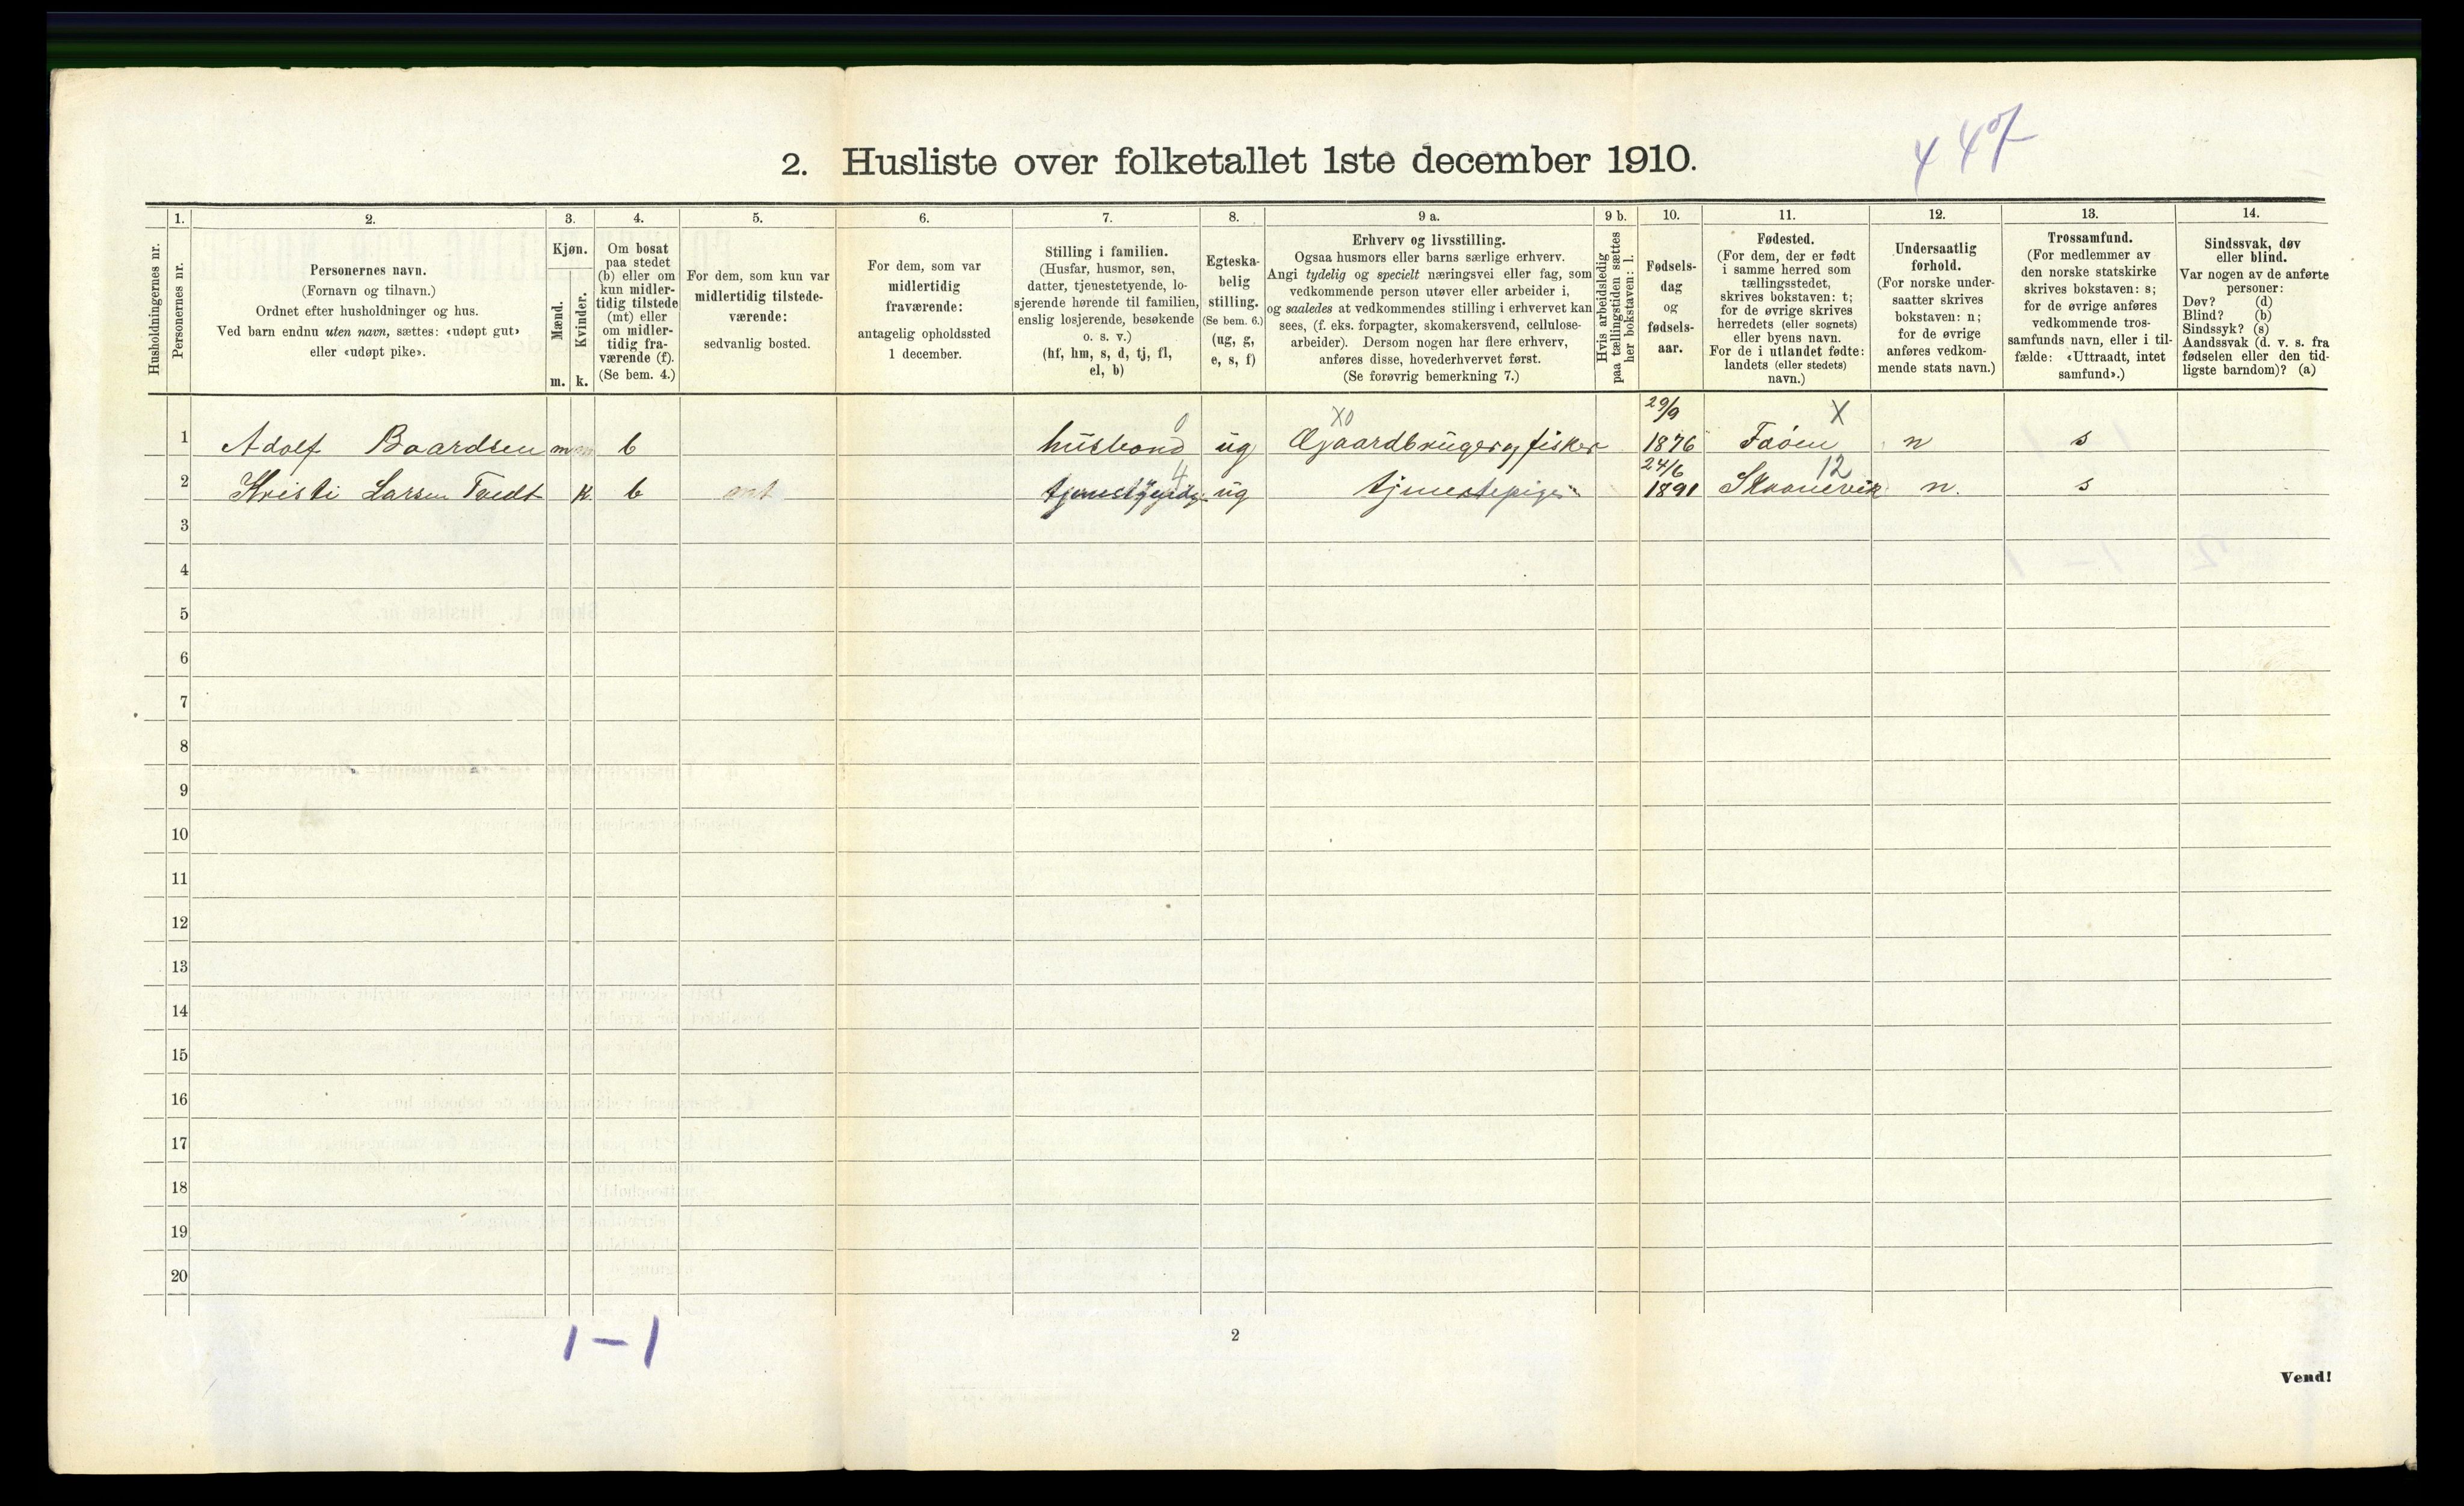 447
2. Husliste over folketallet 1ste december 1910.
1. 2. 3. 4. 5. 6. 7. 8. 9 a. 9 b. 10. 11. 12. 13. 14.
Husholdningernes nr.
Personernes nr.
Personernes navn.
(Fornavn og tilnavn.)
Ordnet efter husholdninger og hus.
Ved barn endnu uten navn, sættes: «udøpt gut»
eller «udøpt pike».
Kjøn.
Mænd.
Kvinder.
m. k.
Om bosat
paa stedet
(b) eller om
kun midler-
tidig tilstede
(mt) eller
om midler-
tidig fra-
værende (f).
(Se bem. 4.)
For dem, som kun var
midlertidig tilstede-
værende:
sedvanlig bosted.
For dem, som var
midlertidig
fraværende:
antagelig opholdssted
1 december.
Stilling i familien.
(Husfar, husmor, søn,
datter, tjenestetyende, lo-
sjerende hørende til familien,
enslig losjerende, besøkende
o. s. v.)
(hf, hm, s, d, tj, fl,
el, b)
Egteska-
belig
stilling.
(Se bem. 6.)
(ug, g,
e, s, f)
Erhverv og livsstilling.
Ogsaa husmors eller barns særlige erhverv.
Angi tydelig og specielt næringsvei eller fag, som
vedkommende person utøver eller arbeider i,
og saaledes at vedkommendes stilling i erhvervet kan
sees, (f. eks. forpagter, skomakersvend, cellulose-
arbeider). Dersom nogen har flere erhverv,
anføres disse, hovederhvervet først.
(Se forøvrig bemerkning 7.)
Hvis arbeidsledig
paa tællingstiden sættes
her bokstaven: l.
Fødsels-
dag
og
fødsels-
aar.
Fødested.
(For dem, der er født
i samme herred som
tællingsstedet,
skrives bokstaven: t;
for de øvrige skrives
herredets (eller sognets)
eller byens navn.
For de i utlandet fødte:
landets (eller stedets)
navn.)
Undersaatlig
forhold.
(For norske under-
saatter skrives
bokstaven: n;
for de øvrige
anføres vedkom-
mende stats navn.)
Trossamfund.
(For medlemmer av
den norske statskirke
skrives bokstaven: s;
for de øvrige anføres
vedkommende tros-
samfunds navn, eller i til-
fælde: «Uttraadt, intet
samfund».)
Sindssvak, døv
eller blind.
Var nogen av de anførte
personer:
Døv? (d)
Blind? (b)
Sindssyk? (s)
Aandssvak (d. v. s. fra
fødselen eller den tid-
ligste barndom)? (a)
0 X0 29/9 X
1 Adolf Baardsen m b husbond ug Gaardbruger og fisker 1876 Fdöen n s
4 24/6 12
2 Kristi Larsen Tvedt k b ug tjenestepige 1891 Skaanevik n. s
3
4
5
6
7
8
9
10
11
12
13
14
15
16
17
18
19
20
1-1
2
Vend!